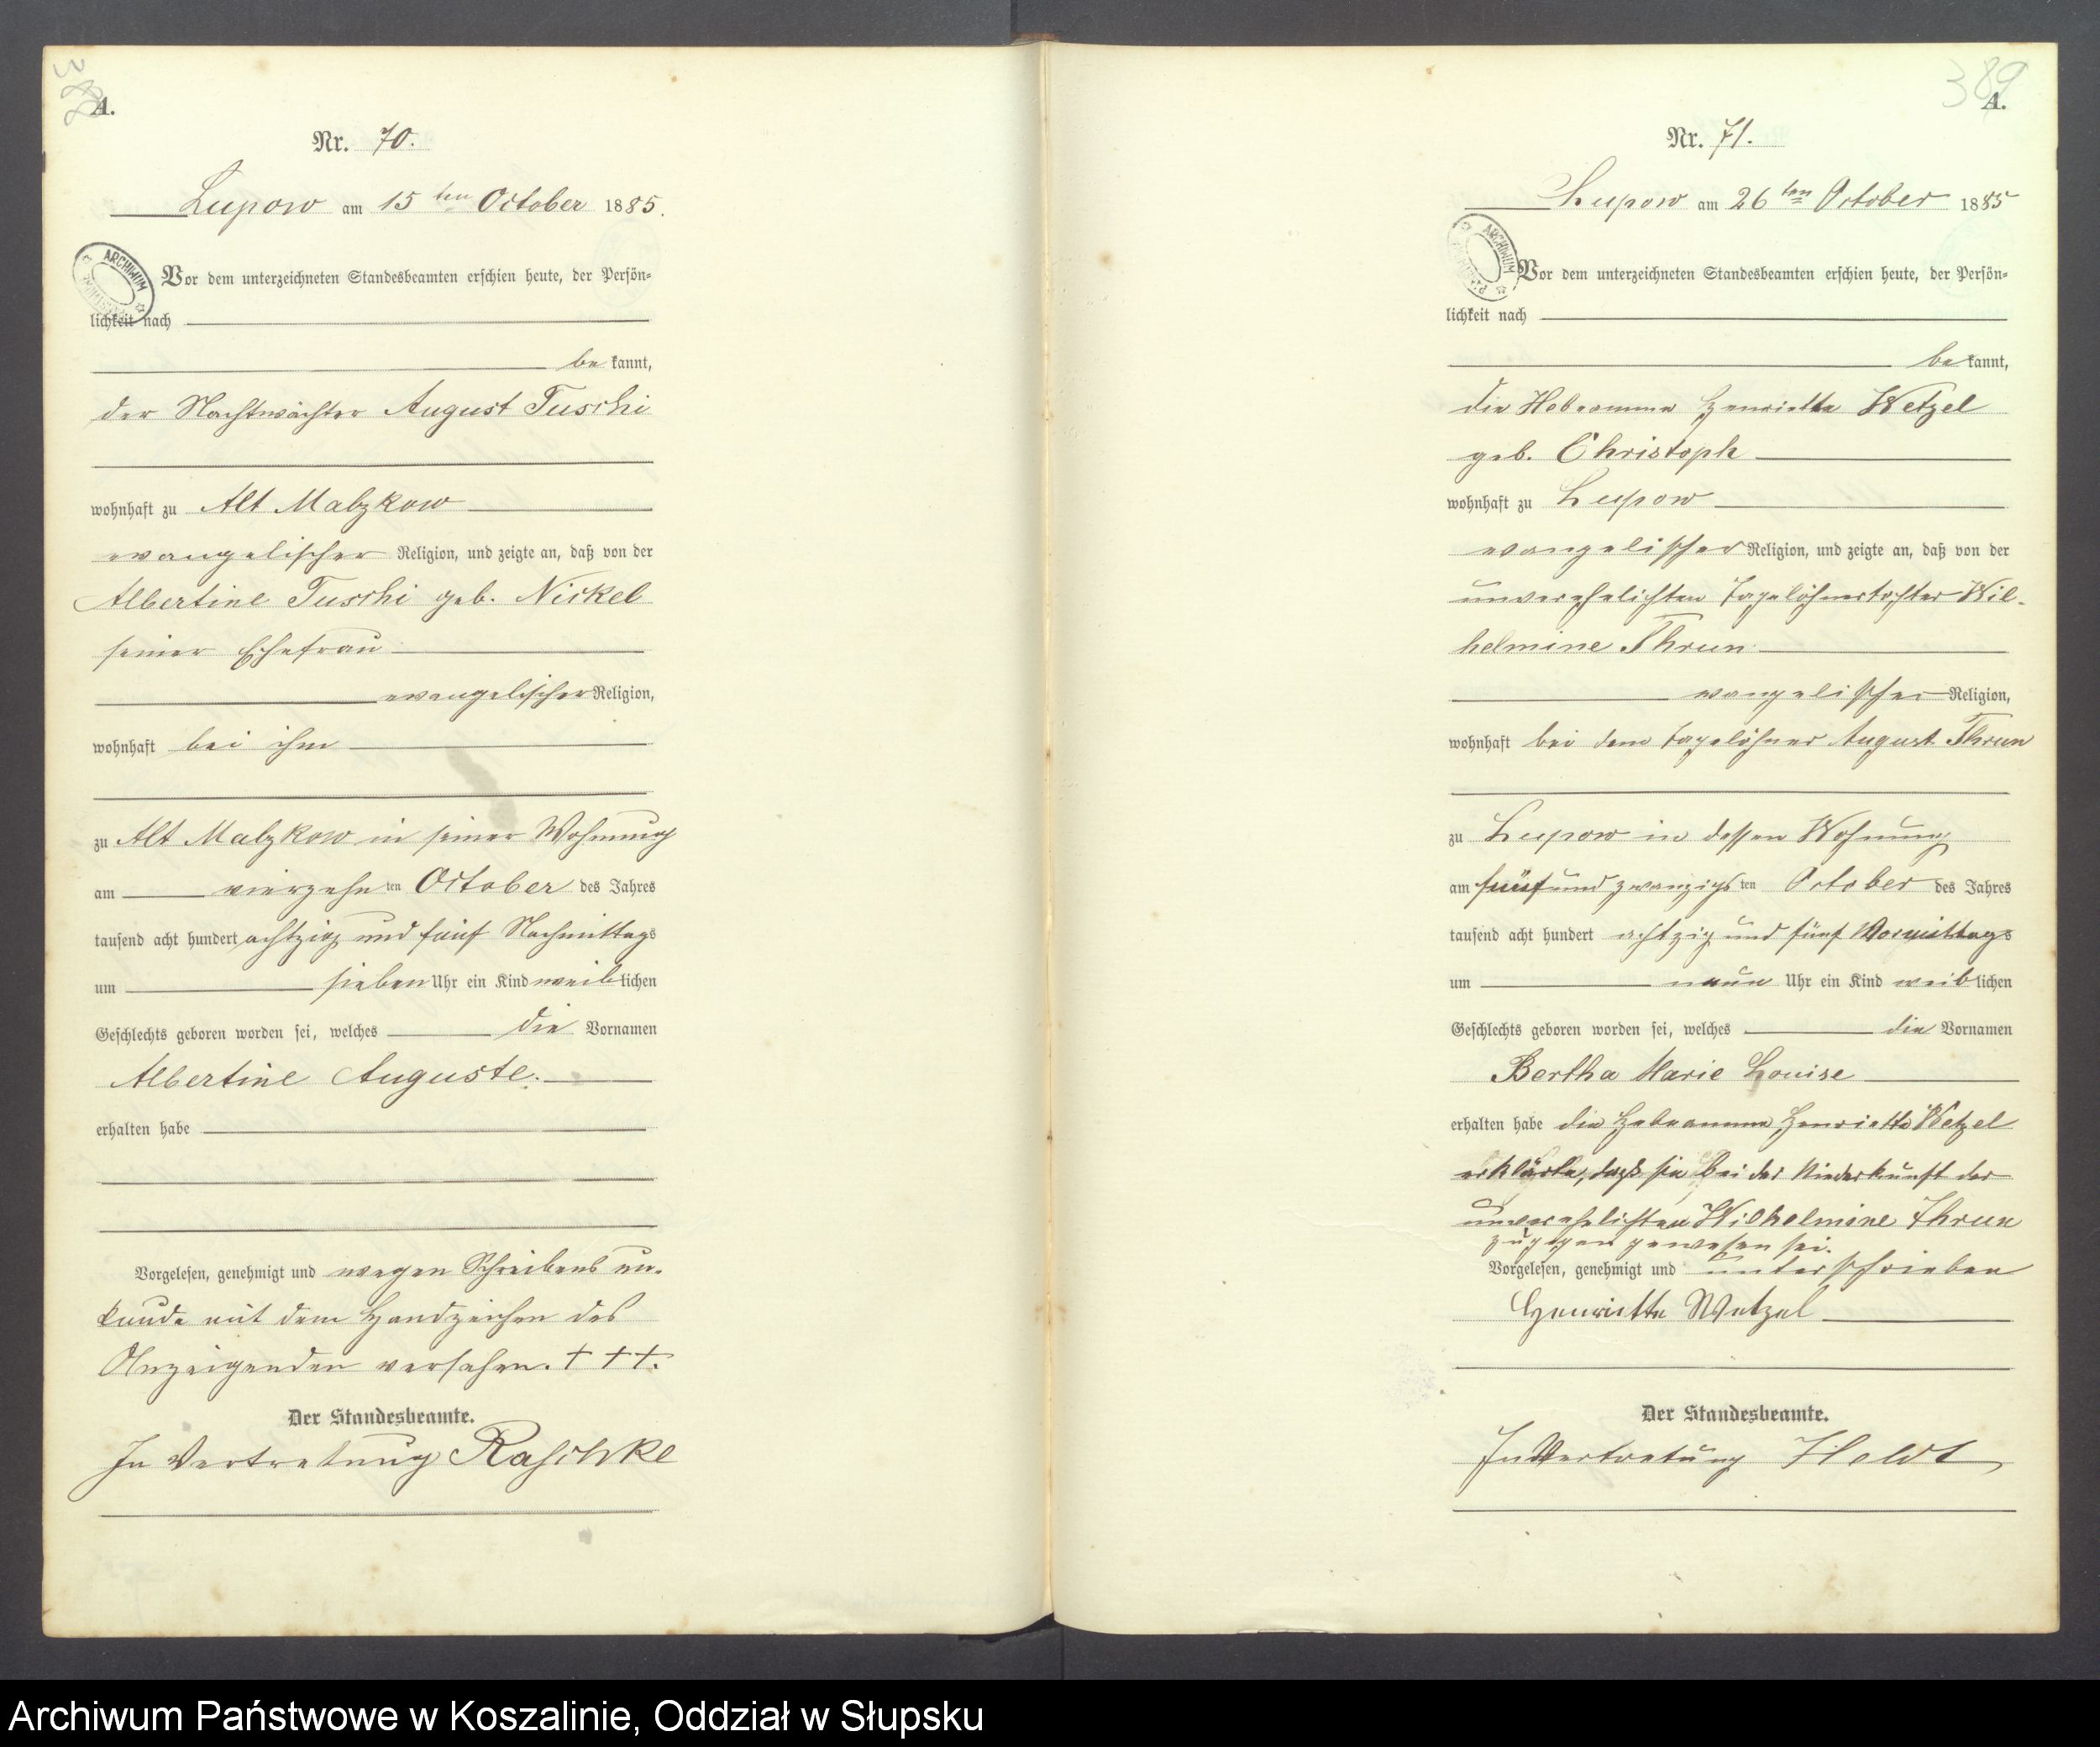 388
A.
Nr. 70.
Lupow am 15 ten October 1885.
ARCHIWUM
Vor dem unterzeichneten Standesbeamten erschien heute, der Persön=
lichkeit nach
be kannt,
der Nachtwächter August Tuschi
wohnhaft zu Alt Malzkow
evangelischer Religion, und zeigte an, daß von der
Albertine Tuschi geb. Nickel
seiner Ehefrau
evangelischer Religion,
wohnhaft bei ihm
zu Alt Malzkow in seiner Wohnung
am vierzehn ten October des Jahres
tausend acht hundert achtzig und fünf Nachmittags
um sieben Uhr ein Kind weiblichen
Geschlechts geboren worden sei, welches die Vornamen
Albertine Auguste.
erhalten habe
Vorgelesen, genehmigt und wegen Schreibens un-
kunde mit dem Handzeichen des
Anzeigenden versehen. † † †.
Der Standesbeamte.
In Vertretung Raschke
389
A.
Nr. 71.
Lupow am 26 ten October 1885
ARCHIWUM
Vor dem unterzeichneten Standesbeamten erschien heute, der Persön=
lichkeit nach
be kannt,
die Hebeamme Henriette Wetzel
geb. Christoph
wohnhaft zu Lupow
evangelischer Religion, und zeigte an, daß von der
unverehelichten Tagelöhnertochter Wil-
helmine Thrun
evangelischer Religion,
wohnhaft bei dem Tagelöhner August Thrun
zu Lupow in dessen Wohnung
am fünfundzwanzigs ten October des Jahres
tausend acht hundert achtzig und fünf Vormittags
um neun Uhr ein Kind weiblichen
Geschlechts geboren worden sei, welches die Vornamen
Bertha Marie Louise
erhalten habe die Hebeamme Henriette Wetzel
erklärte, dass sie bei der Niederkunft der
unverehelichten Wilhelmine Thrun
zugegen gewesen sei.
Vorgelesen, genehmigt und unterschrieben
Henriette Wetzel
Der Standesbeamte.
In Vertretung
Archiwum Państwowe w Koszalinie, Oddział w Słupsku